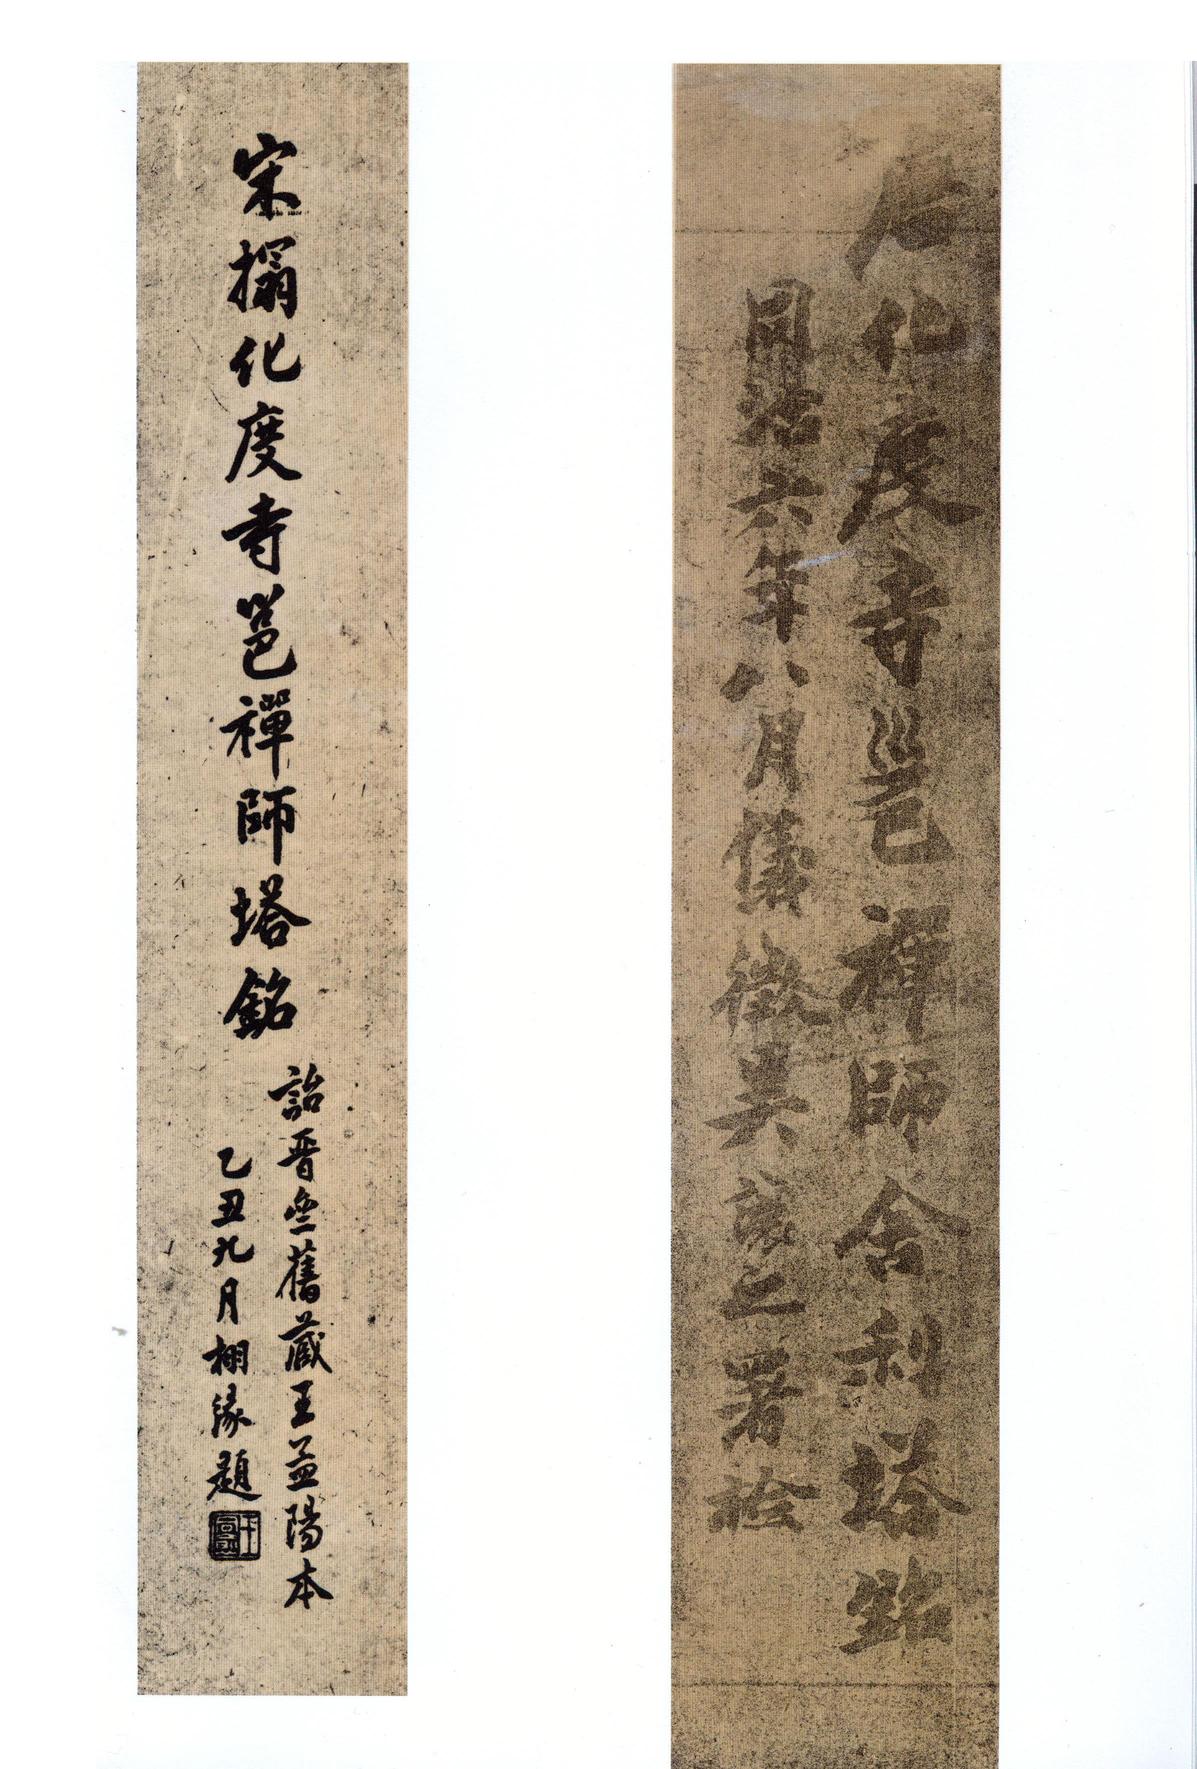 石化度寺邕禪師舍利塔銘
同治六年八月儀徵吳讓之署檢
宋搨化度寺邕禪師塔銘
詒晋齋舊藏王孟陽本
乙丑九月栩緣題